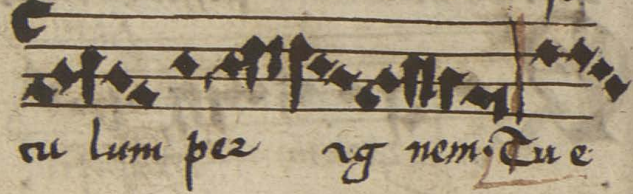 cu lum per ig nem. Tu e